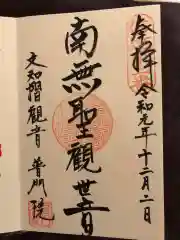 奉拝
令和元年十二月二日
南無聖観世音
文知摺観音 普門院